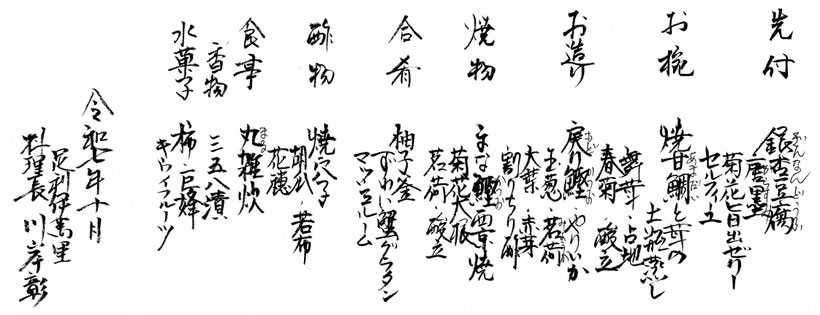 先付
銀杏豆腐
唐墨
菊花七目出ゼリー
セルフィユ
お椀
焼甘鯛と茸の
土瓶蒸し
舞茸・占地
春菊・酸立
お造り
戻り鰹・やりいか
玉葱・茗荷
大葉・赤芽
割りぽん酢
焼物
まな鰹西京焼
菊花大根
茗荷・酸立
合肴
柚子釜
ずわい蟹グラタン
マッシュルーム
酢物
焼穴子
胡瓜・若布
花穂
食事
丸雑炊
香物
三五八漬
水菓子
柿・巨峰
キウイフルーツ
令和七年十月
足利伊萬里
料理長 川岸彰